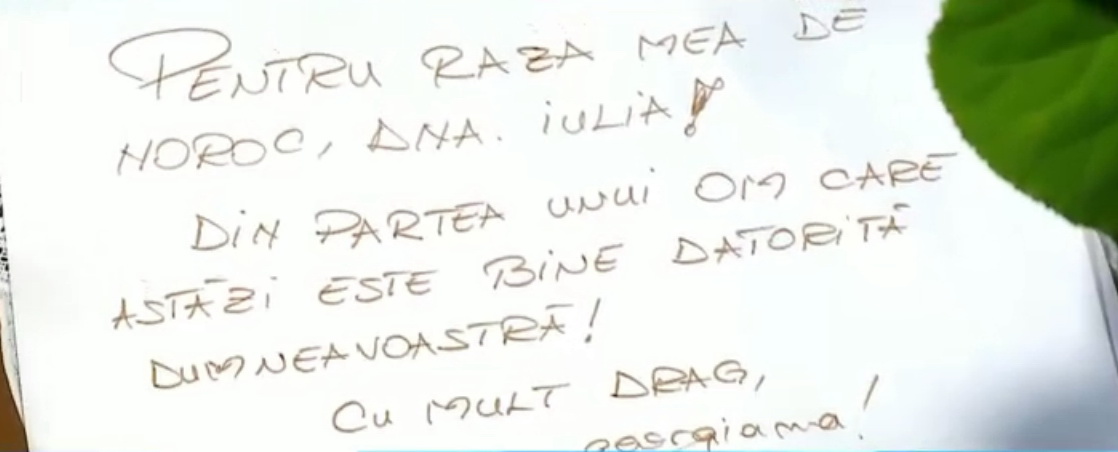 PENTRU RAZA MEA DE
NOROC, DNA. IULIA!
DIN PARTEA UNUI OM CARE
ASTĂZI ESTE BINE DATORITĂ
DUMNEAVOASTRĂ!
CU MULT DRAG,